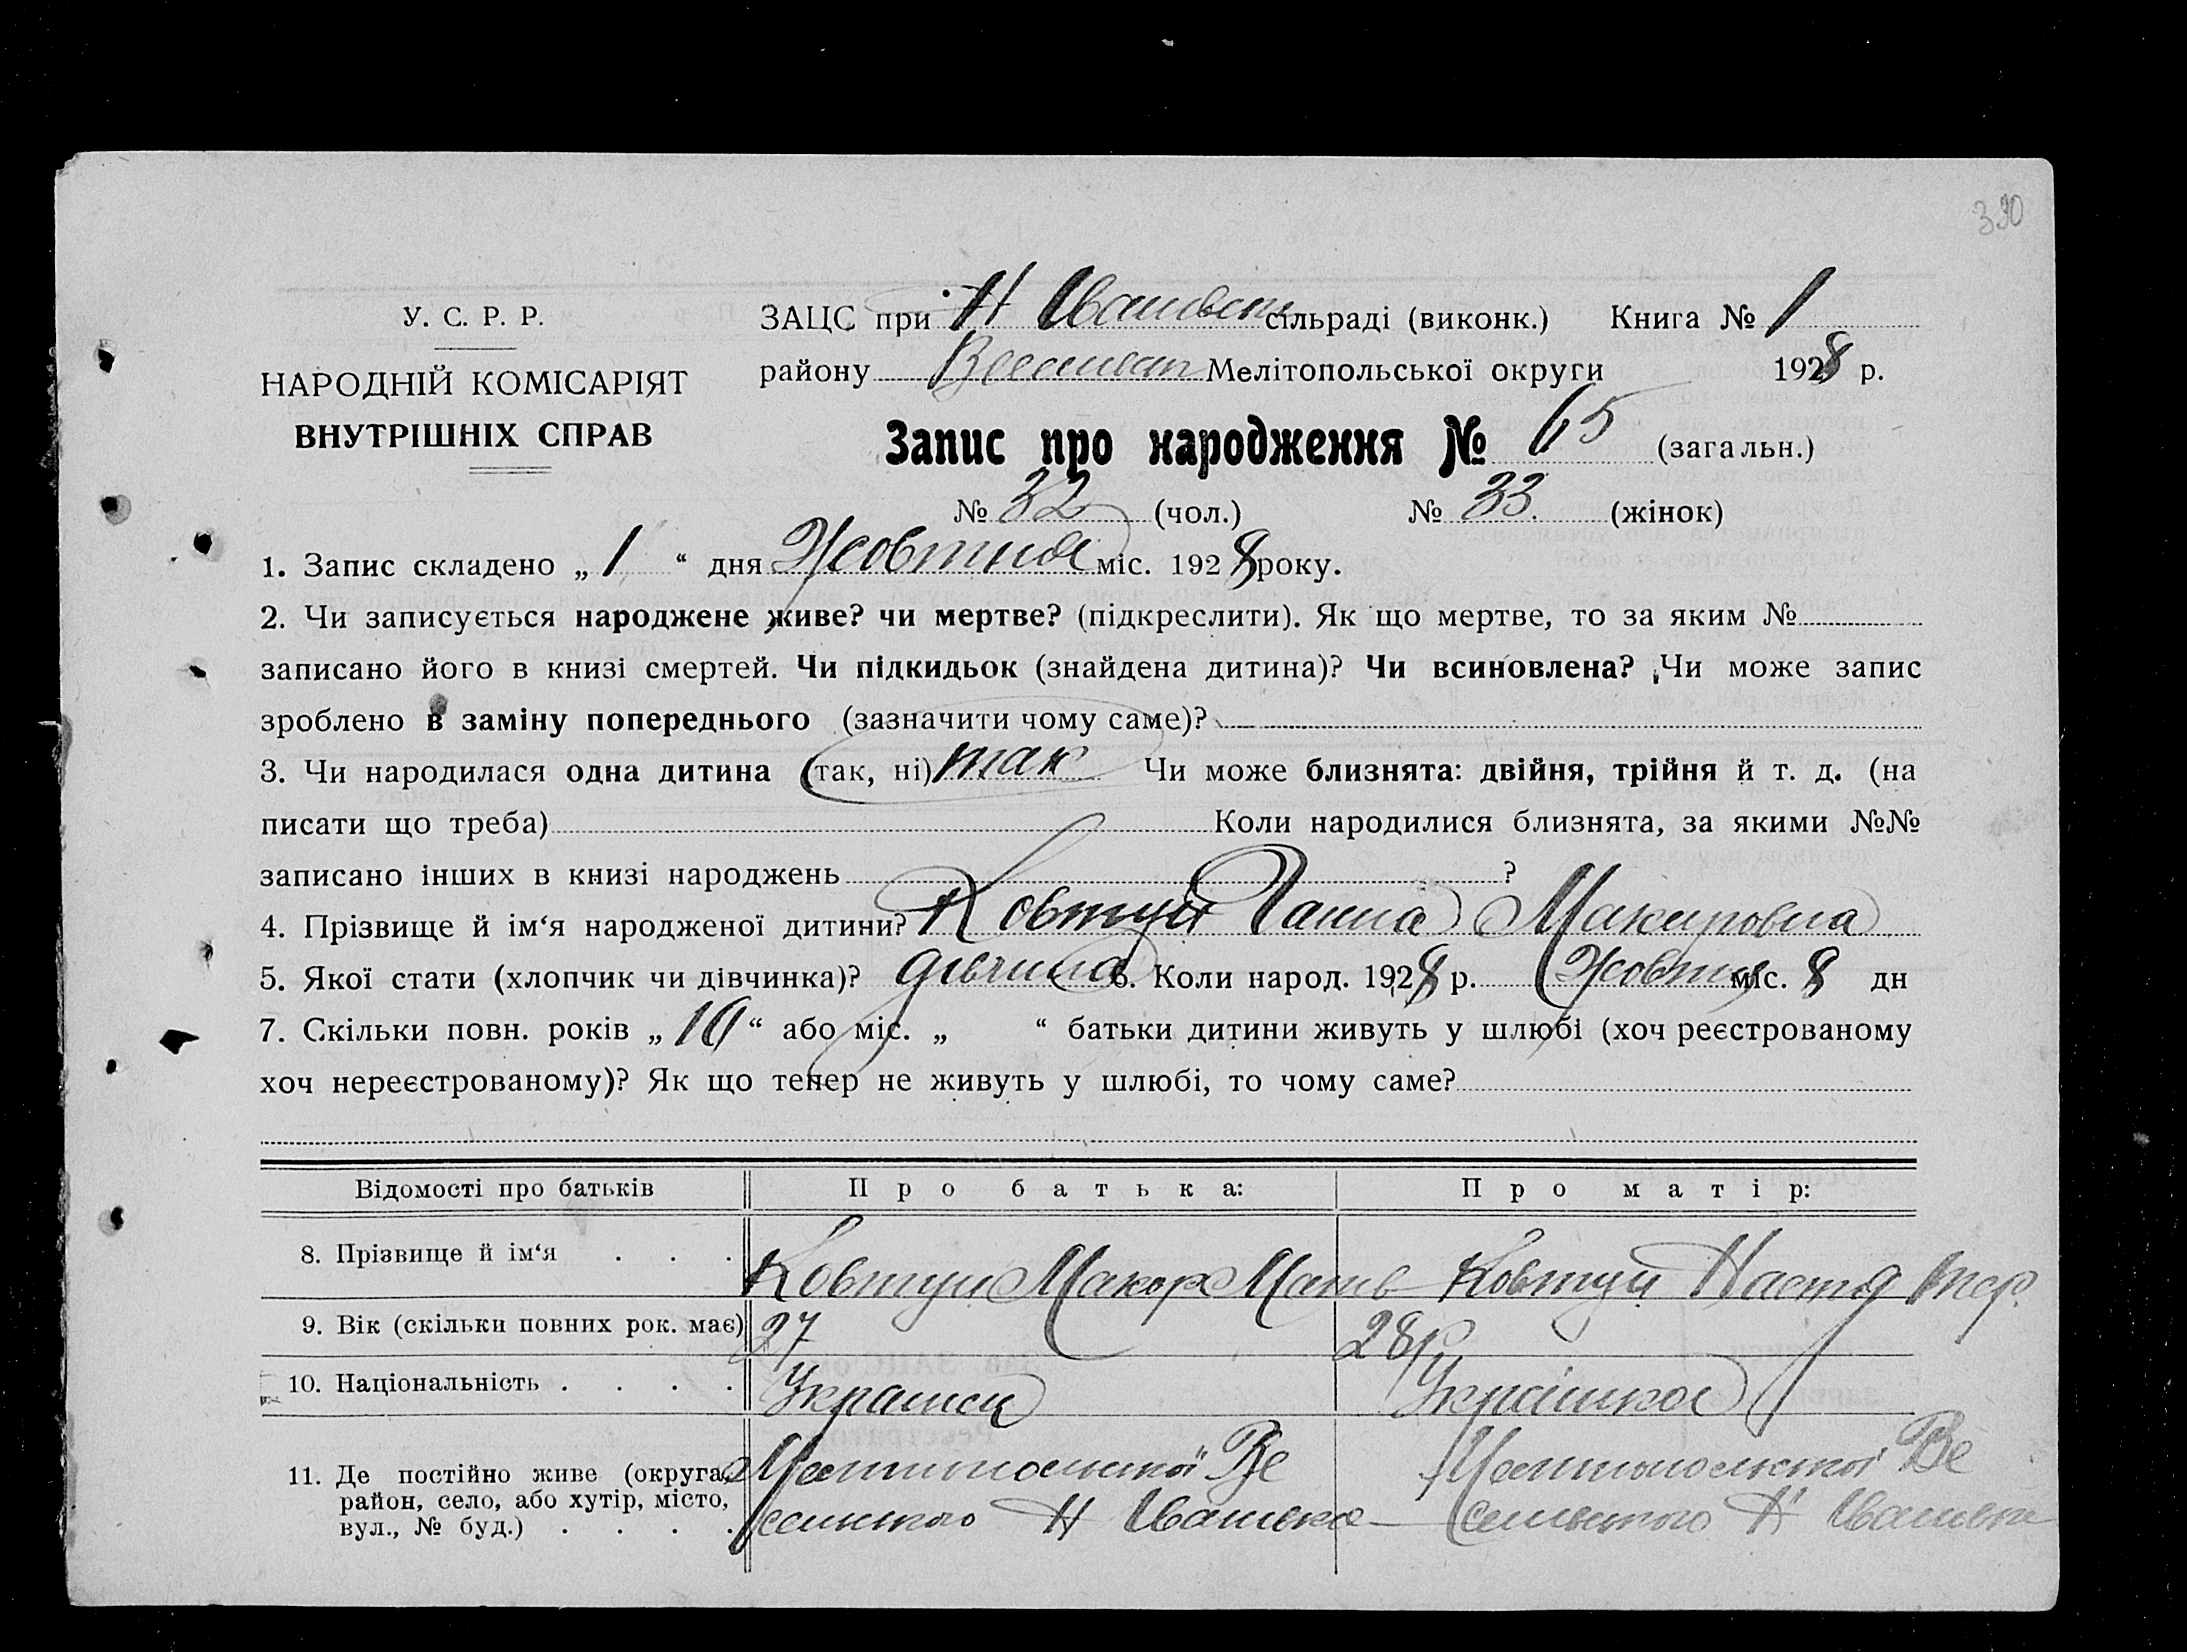 390
У. С. Р. Р.
НАРОДНІЙ КОМІСАРІЯТ
ВНУТРІШНІХ СПРАВ
ЗАЦС при Н Іванівськ сільраді (виконк.) Книга № 1
району Мелітопольської округи 1928 р.
Запис про народження № 65 (загальн.)
№ 32 (чол.) № 33. (жінок)
1. Запис складено „ 1 “ дня Жовтня міс. 1928 року.
2. Чи записується народжене живе? чи мертве? (підкреслити). Як що мертве, то за яким №
записано його в книзі смертей. Чи підкидьок (знайдена дитина)? Чи всиновлена? Чи може запис
зроблено в заміну попереднього (зазначити чому саме)?
3. Чи народилася одна дитина (так, ні) так Чи може близнята: двійня, трійня й т. д. (на
писати що треба) Коли народилися близнята, за якими №№
записано інших в книзі народжень ?
4. Прізвище й ім‘я народженої дитини? Ковтун Ганна Макаровна
5. Якої стати (хлопчик чи дівчинка)? дівчина 6. Коли народ. 1928 р. Жовтня міс. 8 дн
7. Скільки повн. років „ 10 “ або міс. „ “ батьки дитини живуть у шлюбі (хоч реєстрованому
хоч нереєстрованому)? Як що тепер не живуть у шлюбі, то чому саме?
Відомості про батьків Про батька: Про матір:
8. Прізвище й ім‘я . . . Ковтун Макар Матв Ковтун Настя
9. Вік (скільки повних рок. має) 27 28р
10. Національність . . . . Украинец Українка
11. Де постійно живе (округа, Мелітопольської Ве Мелітопольської Ве
район, село, або хутір, місто, селського Н Іванівка селського Н Іванівка
вул., № буд.) . . . .